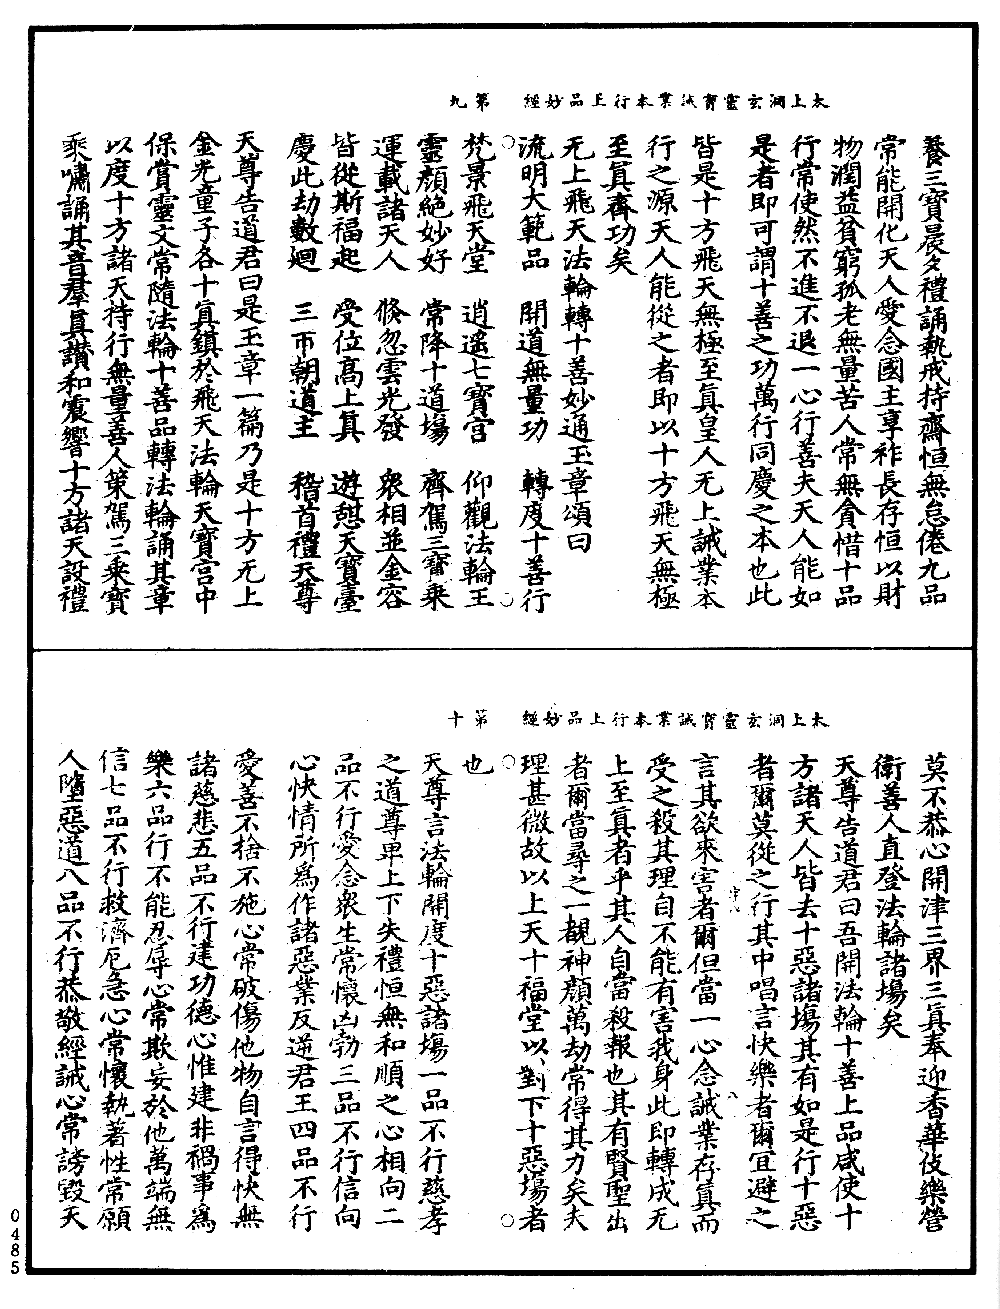 太上洞玄靈寳誡業本行上品妙經　第九
養三寶晨夕禮誦執戒持齋恒無怠倦九品
常能開化天人愛念國主享祚長存恒以財
物潤益貧窮孤老無量苦人常無貪惜十品
行常使然不進不退一心行善夫天人能如
是者即可謂十善之功萬行同慶之本也此
皆是十方飛天無極至真皇人无上誡業本
行之源天人能從之者即以十方飛天無極
至真齊功矣
无上飛天法輪轉十善妙通玉章頌曰
流明大範品　開道無量功　轉度十善行
梵景飛天堂　逍遥七寶宫　仰觀法輪王
靈顔絶妙好　常降十道塲　齊駕三寶乘
運載諸天人　倏忽雲光發　衆相並金容
皆從斯福起　受位髙上真　遊憇天寶臺
慶此劫數廻　三帀朝道主　稽首禮天尊
天尊告道君曰是玉章一篇乃是十方无上
金光童子各十真鎮於飛天法輪天寶宫中
保賞靈文常隨法輪十善品轉法輪誦其章
以度十方諸天持行無量善人策駕三乘寳
乘嘯誦其音羣真讃和震響十方諸天設禮
太上洞玄靈寳誡業本行上品妙經　第十
莫不恭心開津三界三真奉迎香華伎樂營
衛善人直登法輪諸塲矣
天尊告道君曰吾開法輪十善上品咸使十
方諸天人皆去十惡諸塲其有如是行十惡
者爾莫從之行其中唱言快樂者爾宜避之
言其欲來害者爾但當一心念誡業存真而
受之殺其理自不能有害我身此即轉成无
上至真者乎其人自當殺報也其有賢聖出
者爾當尋之一覩神顔萬劫常得其力矣夫
理甚微故以上天十福堂以對下十惡塲者
也
天尊言法輪開度十惡諸塲一品不行慈孝
之道尊卑上下失禮恒無和順之心相向二
品不行愛念衆生常懷凶勃三品不行信向
心快情所爲作諸惡業反逆君王四品不行
愛善不捨不施心常破傷他物自言得快無
諸慈悲五品不行建功德心惟建非禍事爲
樂六品行不能忍辱心常欺妄於他萬端無
信七品不行救濟厄急心常懷執著性常願
人墮惡道八品不行恭敬經誡心常謗毁天
0485